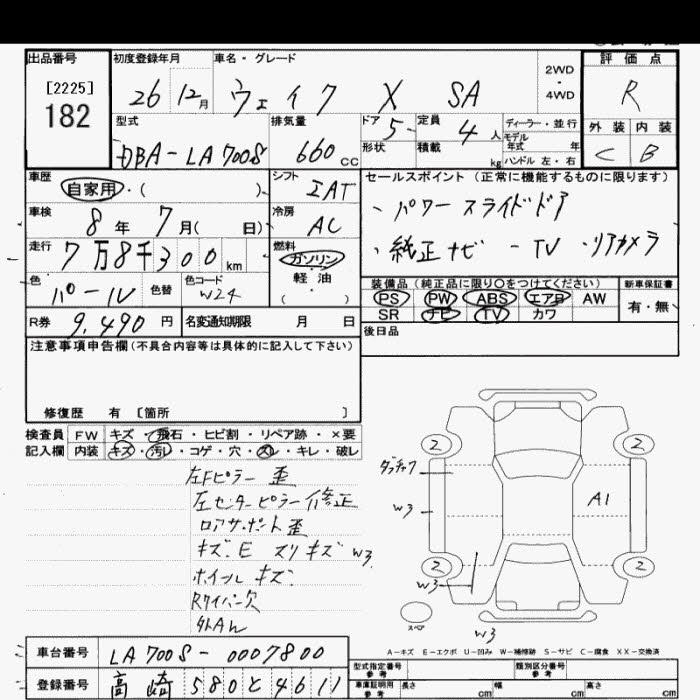 出品番号 初度登録年月 車名・グレード 評価点
[2225] 26 12月 ウェイク X SA 2WD・4WD R
182
型式 排気量 ドア 5 定員 4人 ディーラー・並行 外装 内装
DBA-LA700S 660cc 形状 積載 kg モデル年式 年 C B
ハンドル 左・右
車歴 自家用・( ) シフト IAT セールスポイント(正常に機能するものに限ります)
車検 8年 7月( 日) 冷房 AC 、パワースライドドア
走行 7万8千300km 燃料 ガソリン 軽油 ( ) ・純正ナビ -TV ・リアカメラ
色 パール 色替 色コード W24 装備品(純正品に限り○をつけてください) 新車保証書
PS PW ABS エアB AW 有・無
SR ナビ TV カワ
R券 9,490円 名変通知期限 月 日 後日品
注意事項申告欄(不具合内容等は具体的に記入して下さい)
修復歴 有 [箇所 ]
検査員 FW キズ・飛石・ヒビ割・リペア跡・×要
記入欄 内装 キズ・汚レ・コゲ・穴・スレ・キレ・破レ
左Fピラー歪
左センターピラー修正
ロアサポート歪
キズ.E スリキズ W3
ホイールキズ
Rタイパン欠
2 2
W3 A1
2 2
W3
スペア
W3
A-キズ E-エクボ U-凹み W-補修跡 S-サビ C-腐食 XX-交換済
車台番号 LA700S-0007800
型式指定番号 参考 類別区分番号 参考
登録番号 高崎 580 と 4611
車庫証明用 参考 長さ cm 幅 cm 高さ cm